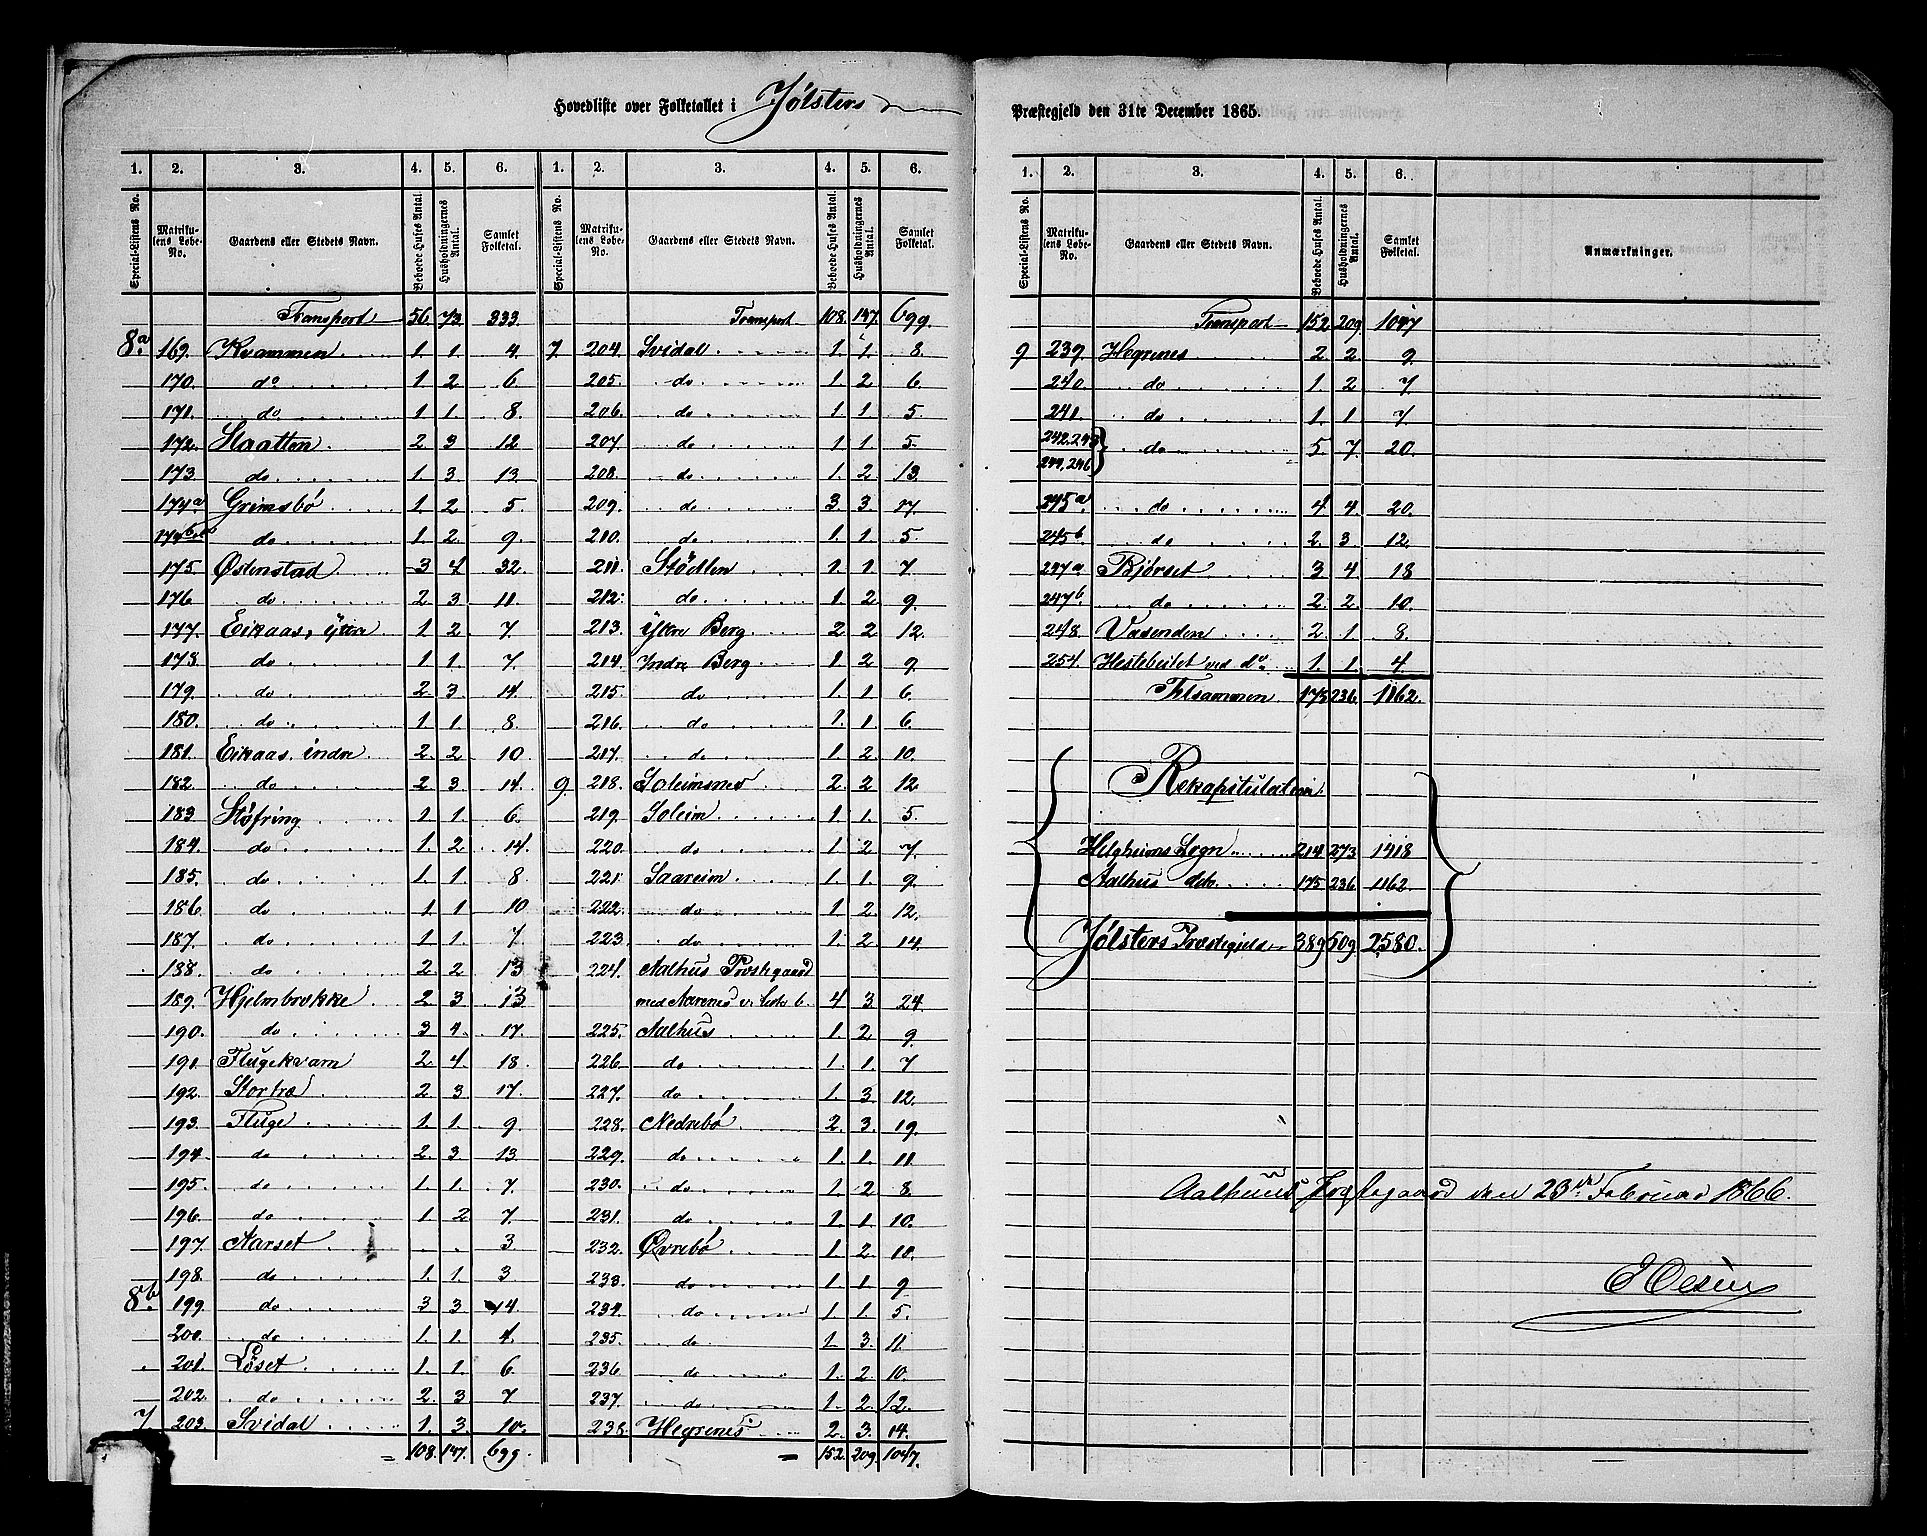 Hovedliste over Folketallet i Jølsters
Præstegjeld den 31te December 1865.
1. 2. 3. 4. 5. 6. 1. 2. 3. 4. 5. 6.
Special-Listens No. Matrikulens Løbe-No. Gaardens eller Stedets Navn. Beboede Huses Antal. Husholdningernes Antal. Samlet Folketal. Special-Listens No. Matrikulens Løbe-No. Gaardens eller Stedets Navn. Beboede Huses Antal. Husholdningernes Antal. Samlet Folketal.
Transport 56. 73. 333. Transport 108. 147. 699.
8a. 169. Kvammen 1. 1. 4. 7. 204. Svidal 1. 1. 8.
170. do 1. 2. 6. 205. do 1. 2. 6.
171. do 1. 1. 8. 206. do 1. 1. 5.
172. Slaatten 2. 3. 12. 207. do 1. 1. 5.
173. do 1. 3. 13. 208. do 1. 2. 13.
174a Grimsbø 1. 2. 5. 209. do 3. 3. 17.
174b do 1. 2. 9. 210. do 1. 1. 5
175. Østenstad 3. 4. 32. 211. Stødlen 1. 1. 7
176. do 2. 3. 11. 212. do 1. 2. 9.
177. Eikaas, ytre 1. 2. 7. 213. Ytre Berg 2. 2. 12.
178. do 1. 1. 7. 214. Indre Berg 1. 2. 9.
179. do 2. 3. 14. 215. do 1. 1. 6.
180. do 1. 1. 8. 216. do 1. 1. 6.
181. Eikaas, indre 2. 2. 10 217. do 1. 2. 10.
182. do 2. 3. 14. 9. 218. Soleimsnes 2. 2. 12
183. Støfring 1. 1. 6. 219. Soleim 1. 1. 5.
184. do 1. 2. 14. 220. do 1. 2. 7.
185. do 1. 1. 8 221. Saareim 1. 1. 9.
186. do 1. 1. 10 222. do 1. 2. 12.
187. do 1. 1. 7. 223. do 1. 2. 14.
188. do 2. 2. 13 224. Aalhus Prestegaard
189. Hjelmbrekke 2. 3. 13 med Aarenes v. Liste 6. 4. 3. 24.
190. do 3. 4. 17. 225. Aalhus 1. 2. 9.
191. Flugekvam 2. 4. 18. 226. do 1. 1. 7
192. Stortræ 2. 3. 17. 227. do 1. 3. 12.
193. Fluge 1. 1. 9. 228. Nedrebø 2. 3. 19.
194. do 2. 3. 13. 229. do 1. 1. 11.
195. do 1. 1. 7. 230. do 1. 2. 8.
196. do 1. 2. 7. 231. do 1. 1. 10.
197. Aarset 3 232. Øvrebø 1. 2. 10.
198. do 1. 1. 3 233. do 1. 1. 9
8b. 199. do 3. 3. 14. 234. do 1. 1. 5.
200. do 1. 1. 4. 235. do 1 3. 11.
201. Løset 1. 1. 6. 236. do 1. 2. 10.
202. do 2. 3. 7 237. do 1. 2. 12.
7. 203. Svidal 1. 3. 10. 238. Hegrenes 2. 3. 14.
= 108. 147. 699. = 152. 209. 1047.
1. 2. 3. 4. 5. 6.
Special-Listens No. Matrikulens Løbe-No. Gaardens eller Stedets Navn. Beboede Huses Antal. Husholdningernes Antal. Samlet Folketal. Anmærkninger.
Transport 152. 209. 1047
9 239. Hegrenes 2. 2. 9.
240. do 1. 2. 7
241. do 1. 1. 7.
242. 243 } do 5 7. 20.
244. 246
245a do 4. 4. 20.
245b do 2. 3. 12.
247a Bjørset 3. 4. 18
247b do 2. 2. 10.
248. Vasenden 2. 1. 8.
254. Hestebeitet ved do 1. 1. 4
Tilsammen 175 236. 1162.
Rekapitulation
Helgheims Sogn 214 273 1418
Aalhus dito 175 236 1162
Jølsters Præstegjeld 389 509. 2580.
Aalhuus Præstegaard den 23de Februar 1866.